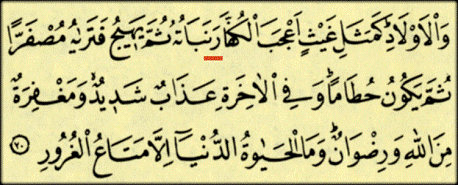 وَالْاَوْلَادِۜ كَمَثَلِ غَيْثٍ اَعْجَبَ الْكُفَّارَ نَبَاتُهُ ثُمَّ يَهٖيجُ فَتَرٰيهُ مُصْفَرًّا
ثُمَّ يَكُونُ حُطَامًاۜ وَفِي الْاٰخِرَةِ عَذَابٌ شَدٖيدٌۙ وَمَغْفِرَةٌ
مِنَ اللّٰهِ وَرِضْوَانٌۜ وَمَا الْحَيٰوةُ الدُّنْيَٓا اِلَّا مَتَاعُ الْغُرُورِ ﴿٢٠﴾